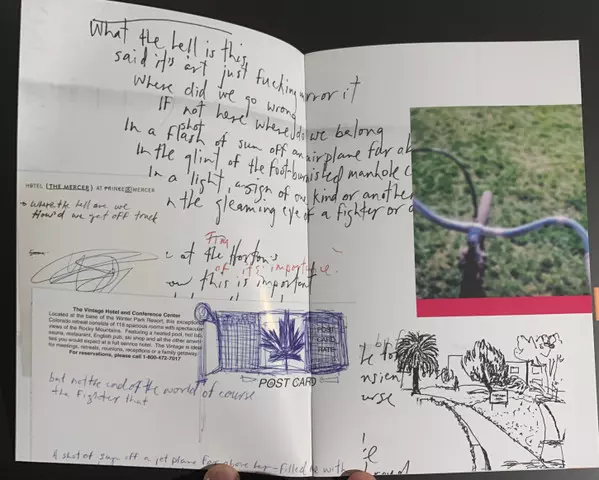 What the hell is this
said it's art just fucking mirror it
Where did we go wrong
IF not here where do we belong
shot
In a flash of sun off an airplane far ab
In the glint of the foot-burnished manhole c
In a light, a sign of one kind or another
n the gleaming eye of a fighter or a
HOTEL (THE MERCER) AT PRINCE MERCER
Where the hell are we
How'd we get off track
Tim
at the Hortons
of its importance.
this is important
The Vintage Hotel and Conference Center
Located at the base of the Winter Park Resort, this exceptional
Colorado retreat consists of 118 spacious rooms with spectacular
views of the Rocky Mountains. Featuring a heated pool, hot tub,
sauna, restaurant, English pub, ski shop and all the other ameni-
ties you would expect at a full service hotel. The Vintage is ideal
for meetings, retreats, reunions, receptions or a family getaway.
For reservations, please call 1-800-472-7017
POST
CARD
RATE
POST CARD
by
but not the end of the world of course
the fighter that
A shot of sun off a jet plane far above
filled me with